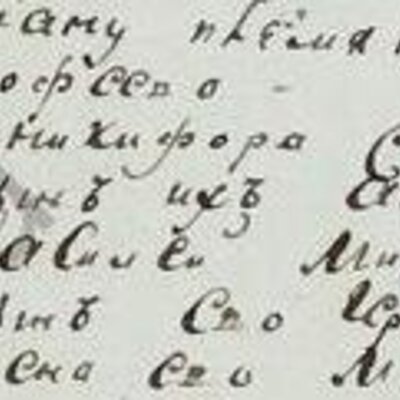 ану племян
офеево -
Никифора С
инъ ихъ
асилей Ми
инъ Ево
сна ево М